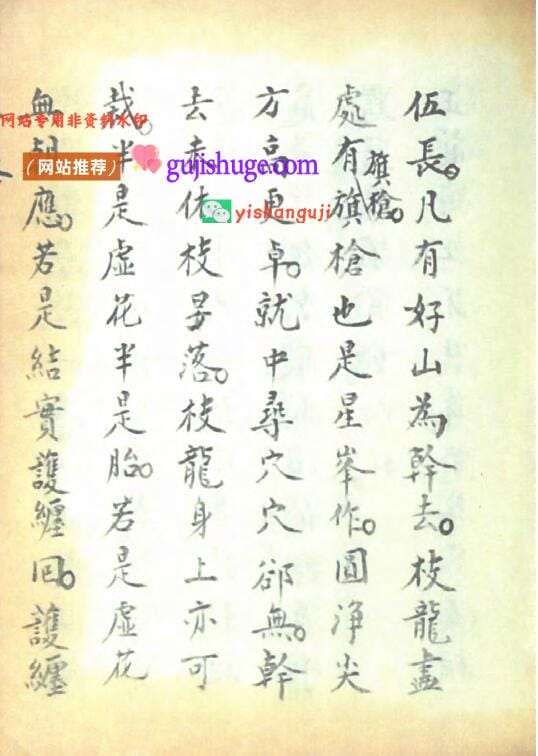 伍長。凡有好山為幹去。枝龍盡
處有旗槍也是星峯作。圓淨尖
旗槍。
方高更卓。就中尋穴穴卻無。幹
去未休枝早落。枝龍身上亦可
裁。半是虛花半是胎。若是虛花
無朝應。若是結實護纏回。護纏
网站专用非资料水印
（网站推荐）
gujishuge.com
yishanguji